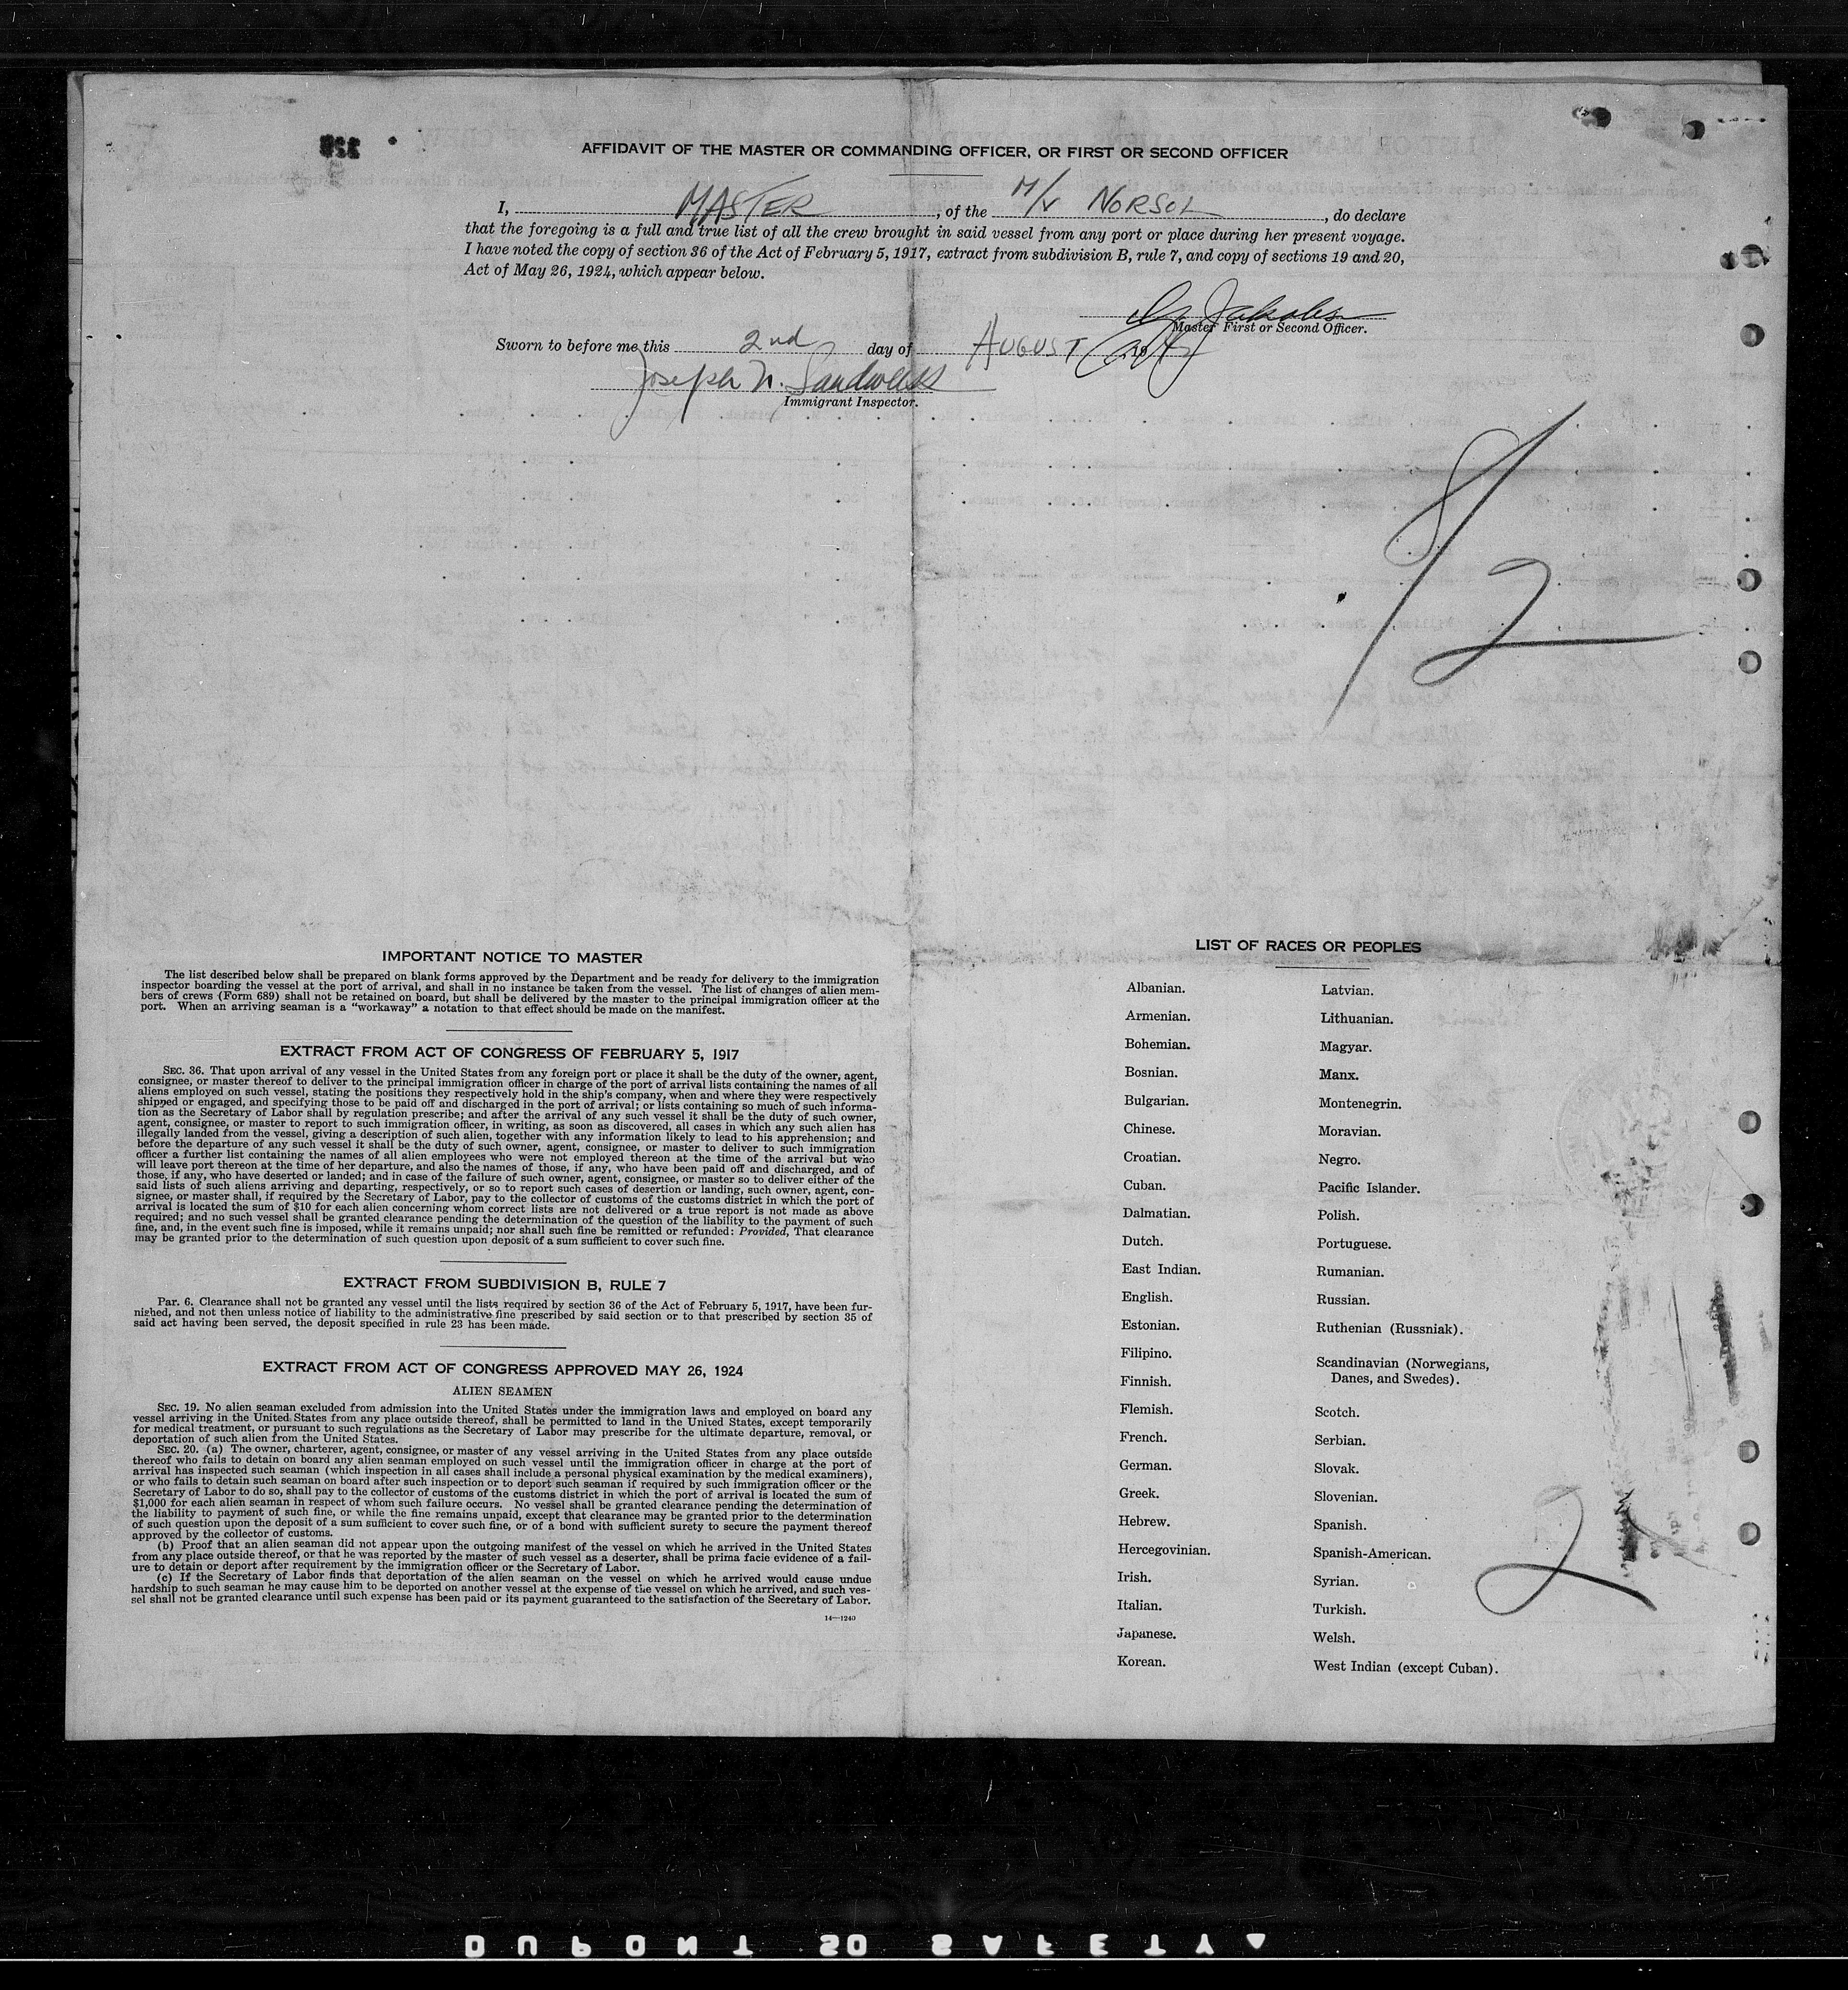 AFFIDAVIT OF THE MASTER OR COMMANDING OFFICER, OR FIRST OR SECOND OFFICER
I, MASTER, of the M/V NORSOL, do declare
that the foregoing is a full and true list of all the crew brought in said vessel from any port or place during her present voyage.
I have noted the copy of section 36 of the Act of February 5, 1917, extract from subdivision B, rule 7, and copy of sections 19 and 20,
Act of May 26, 1924, which appear below.
Master First or Second Officer.
Sworn to before me this 2nd day of AUGUST, 19
Joseph N. Sandweiss
Immigrant Inspector.
8/2
IMPORTANT NOTICE TO MASTER
The list described below shall be prepared on blank forms approved by the Department and be ready for delivery to the immigration
inspector boarding the vessel at the port of arrival, and shall in no instance be taken from the vessel. The list of changes of alien mem-
bers of crews (Form 689) shall not be retained on board, but shall be delivered by the master to the principal immigration officer at the
port. When an arriving seaman is a "workaway" a notation to that effect should be made on the manifest.
EXTRACT FROM ACT OF CONGRESS OF FEBRUARY 5, 1917
SEC. 36. That upon arrival of any vessel in the United States from any foreign port or place it shall be the duty of the owner, agent,
consignee, or master thereof to deliver to the principal immigration officer in charge of the port of arrival lists containing the names of all
aliens employed on such vessel, stating the positions they respectively hold in the ship's company, when and where they were respectively
shipped or engaged, and specifying those to be paid off and discharged in the port of arrival; or lists containing so much of such informa-
tion as the Secretary of Labor shall by regulation prescribe; and after the arrival of any such vessel it shall be the duty of such owner,
agent, consignee, or master to report to such immigration officer, in writing, as soon as discovered, all cases in which any such alien has
illegally landed from the vessel, giving a description of such alien, together with any information likely to lead to his apprehension; and
before the departure of any such vessel it shall be the duty of such owner, agent, consignee, or master to deliver to such immigration
officer a further list containing the names of all alien employees who were not employed thereon at the time of the arrival but who
will leave port thereon at the time of her departure, and also the names of those, if any, who have been paid off and discharged, and of
those, if any, who have deserted or landed; and in case of the failure of such owner, agent, consignee, or master so to deliver either of the
said lists of such aliens arriving and departing, respectively, or so to report such cases of desertion or landing, such owner, agent, con-
signee, or master shall, if required by the Secretary of Labor, pay to the collector of customs of the customs district in which the port of
arrival is located the sum of $10 for each alien concerning whom correct lists are not delivered or a true report is not made as above
required; and no such vessel shall be granted clearance pending the determination of the question of the liability to the payment of such
fine, and, in the event such fine is imposed, while it remains unpaid; nor shall such fine be remitted or refunded: Provided, That clearance
may be granted prior to the determination of such question upon deposit of a sum sufficient to cover such fine.
EXTRACT FROM SUBDIVISION B, RULE 7
Par. 6. Clearance shall not be granted any vessel until the lists required by section 36 of the Act of February 5, 1917, have been fur-
nished, and not then unless notice of liability to the administrative fine prescribed by said section or to that prescribed by section 35 of
said act having been served, the deposit specified in rule 23 has been made.
EXTRACT FROM ACT OF CONGRESS APPROVED MAY 26, 1924
ALIEN SEAMEN
SEC. 19. No alien seaman excluded from admission into the United States under the immigration laws and employed on board any
vessel arriving in the United States from any place outside thereof, shall be permitted to land in the United States, except temporarily
for medical treatment, or pursuant to such regulations as the Secretary of Labor may prescribe for the ultimate departure, removal, or
deportation of such alien from the United States.
SEC. 20. (a) The owner, charterer, agent, consignee, or master of any vessel arriving in the United States from any place outside
thereof who fails to detain on board any alien seaman employed on such vessel until the immigration officer in charge at the port of
arrival has inspected such seaman (which inspection in all cases shall include a personal physical examination by the medical examiners),
or who fails to detain such seaman on board after such inspection or to deport such seaman if required by such immigration officer or the
Secretary of Labor to do so, shall pay to the collector of customs of the customs district in which the port of arrival is located the sum of
$1,000 for each alien seaman in respect of whom such failure occurs. No vessel shall be granted clearance pending the determination of
the liability to payment of such fine, or while the fine remains unpaid, except that clearance may be granted prior to the determination
of such question upon the deposit of a sum sufficient to cover such fine, or of a bond with sufficient surety to secure the payment thereof
approved by the collector of customs.
(b) Proof that an alien seaman did not appear upon the outgoing manifest of the vessel on which he arrived in the United States
from any place outside thereof, or that he was reported by the master of such vessel as a deserter, shall be prima facie evidence of a fail-
ure to detain or deport after requirement by the immigration officer or the Secretary of Labor.
(c) If the Secretary of Labor finds that deportation of the alien seaman on the vessel on which he arrived would cause undue
hardship to such seaman he may cause him to be deported on another vessel at the expense of the vessel on which he arrived, and such ves-
sel shall not be granted clearance until such expense has been paid or its payment guaranteed to the satisfaction of the Secretary of Labor.
14—1240
LIST OF RACES OR PEOPLES
Albanian.
Armenian.
Bohemian.
Bosnian.
Bulgarian.
Chinese.
Croatian.
Cuban.
Dalmatian.
Dutch.
East Indian.
English.
Estonian.
Filipino.
Finnish.
Flemish.
French.
German.
Greek.
Hebrew.
Hercegovinian.
Irish.
Italian.
Japanese.
Korean.
Latvian.
Lithuanian.
Magyar.
Manx.
Montenegrin.
Moravian.
Negro.
Pacific Islander.
Polish.
Portuguese.
Rumanian.
Russian.
Ruthenian (Russniak).
Scandinavian (Norwegians,
Danes, and Swedes).
Scotch.
Serbian.
Slovak.
Slovenian.
Spanish.
Spanish-American.
Syrian.
Turkish.
Welsh.
West Indian (except Cuban).
2
DUPONT SAFETY